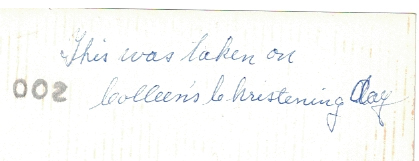 This was taken on
002
Colleen's Christening Day